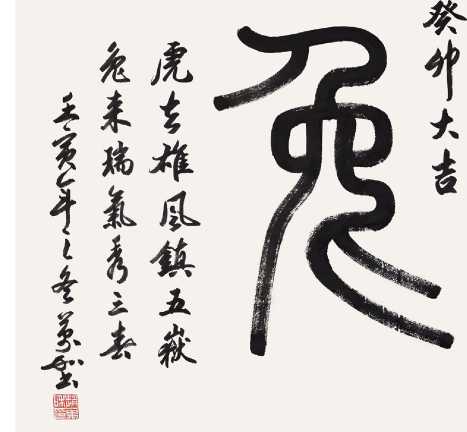 癸卯大吉
兔
虎去雄風鎮五嶽
兔来瑞氣秀三春
壬寅年之冬